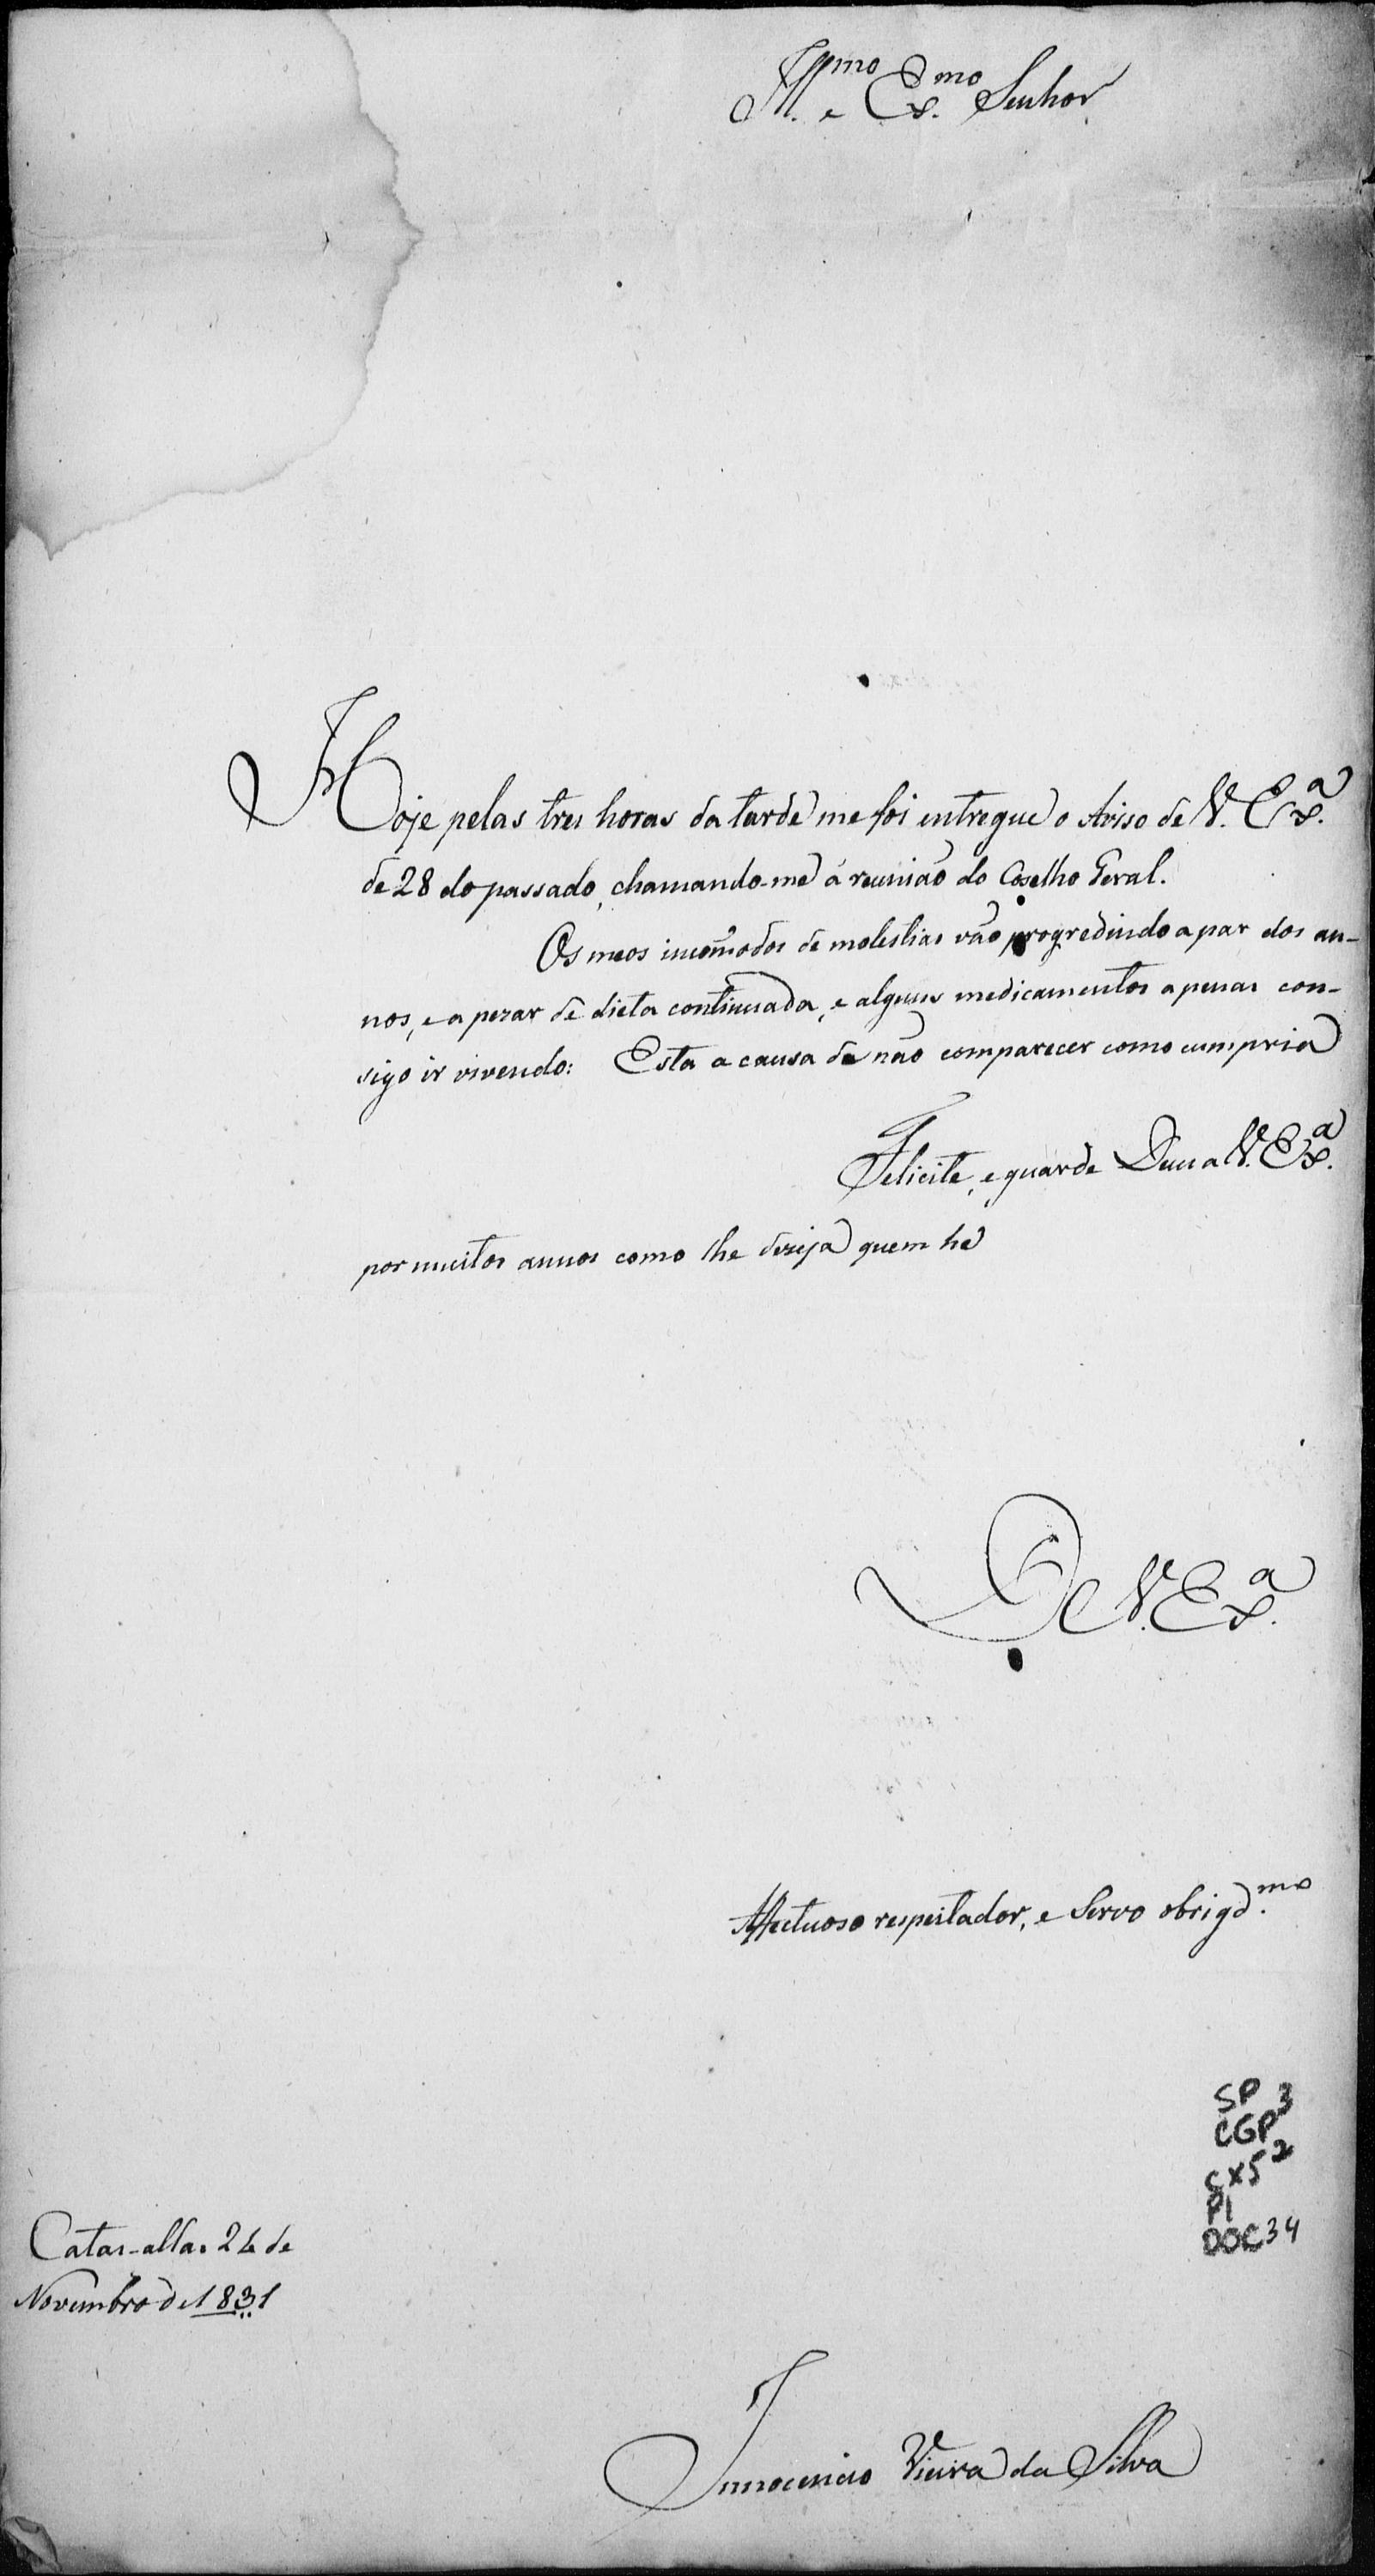 Ill.mo e Ex.mo Senhor
Hoje pelas tres horas da tarde me foi entregue o Aviso de V. Ex.a
de 28 do passado, chamando-me á reunião do Coselho Geral.
Os meos incõmodos de molestias vão progredindo a par dos an-
nos, e a pezar de dieta continuada, e alguns medicamentos apenas con-
sigo ir vivendo: Esta a causa de não comparecer como cumpria
Felicite, e guarde Deus a V. Ex.a
por muitos annos como lhe dezeja quem he
De V. Ex.a
Affectuoso respeitador, e Servo obrigd.mo
SP 3
CGP
CX5 2
P1
DOC34
Catas-altas 24 de
Novembro de 1831
Innocencio Vieira da Silva